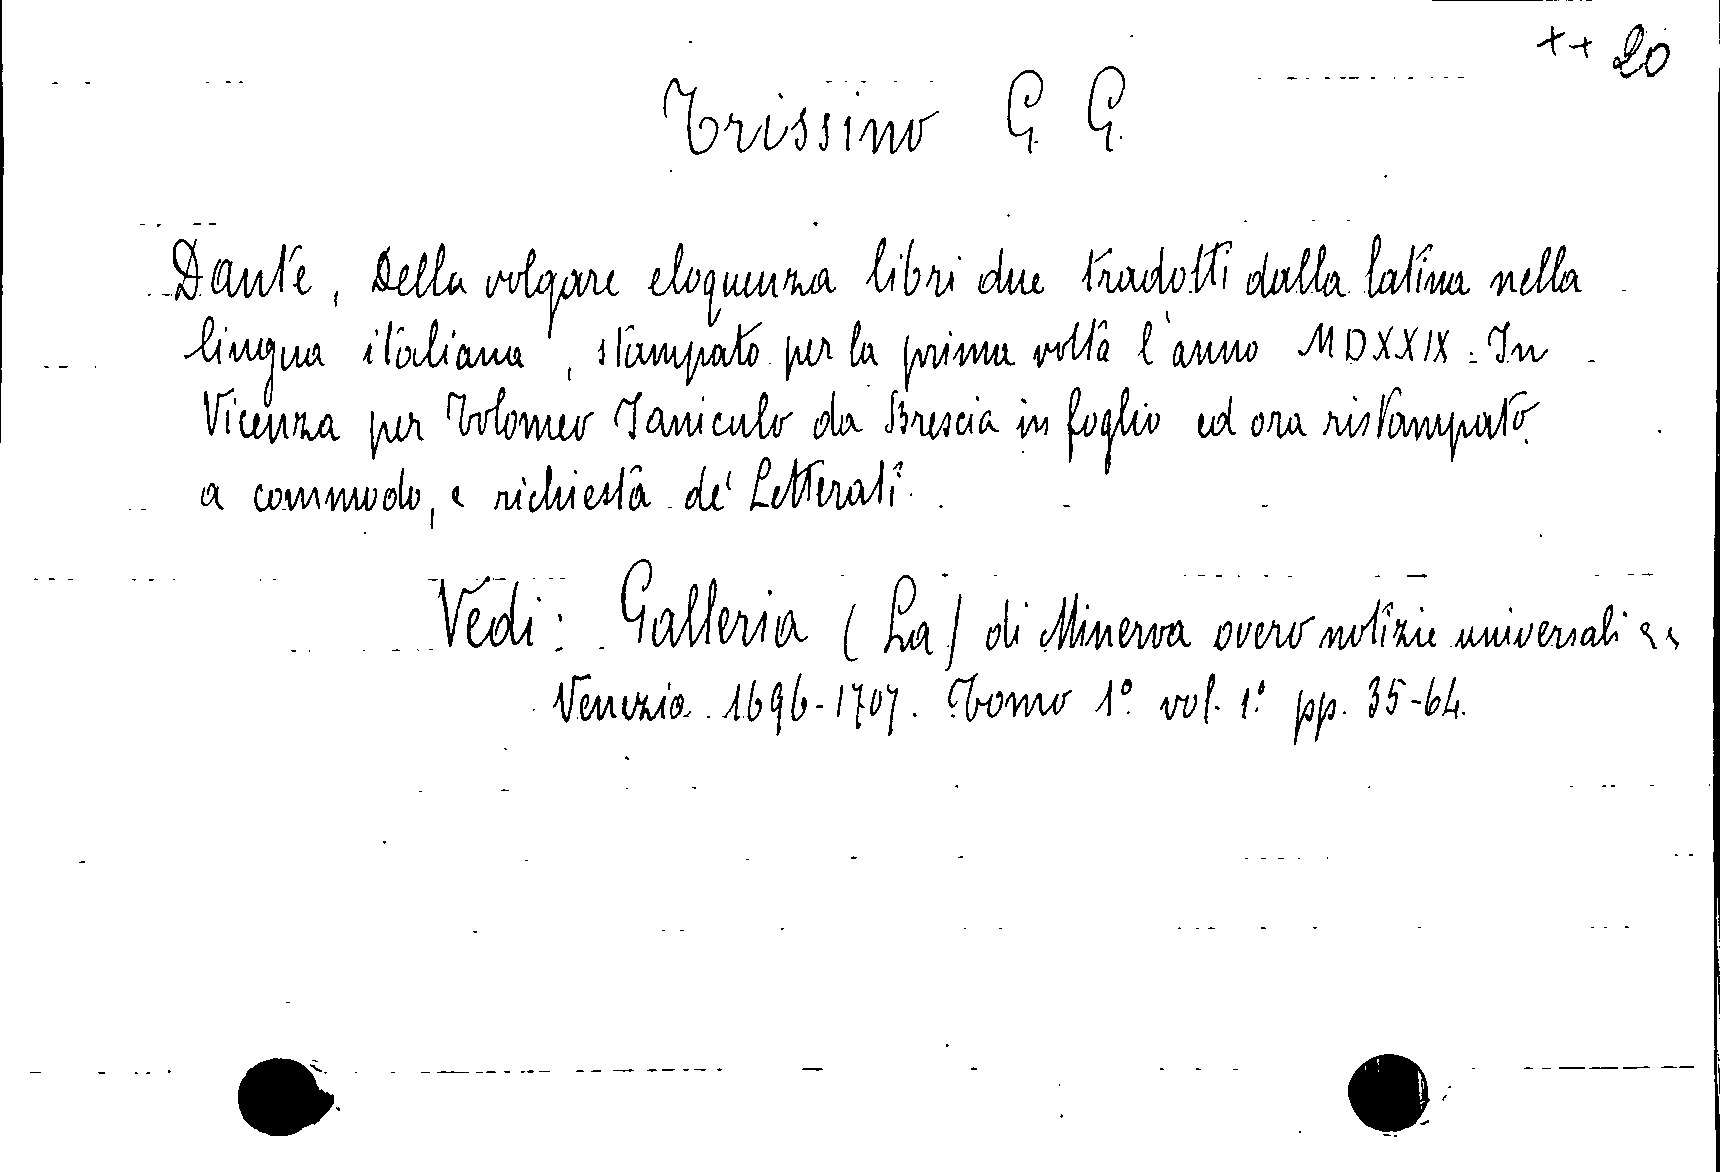 ++ 20
Trissino G. G.
Dante, Della volgare eloquenza libri due tradotti dalla latina nella
lingua italiana, stampato per la prima volta l'anno MDXXIX. In
Vicenza per Tolomeo Janiculo da Brescia in foglio ed ora ristampato
a commodo, e richiesta de' Letterati.
Vedi: Galleria (La) di Minerva overo notizie universali
Venezia 1696-1707. Tomo 1° vol. 1° pp. 35-64.